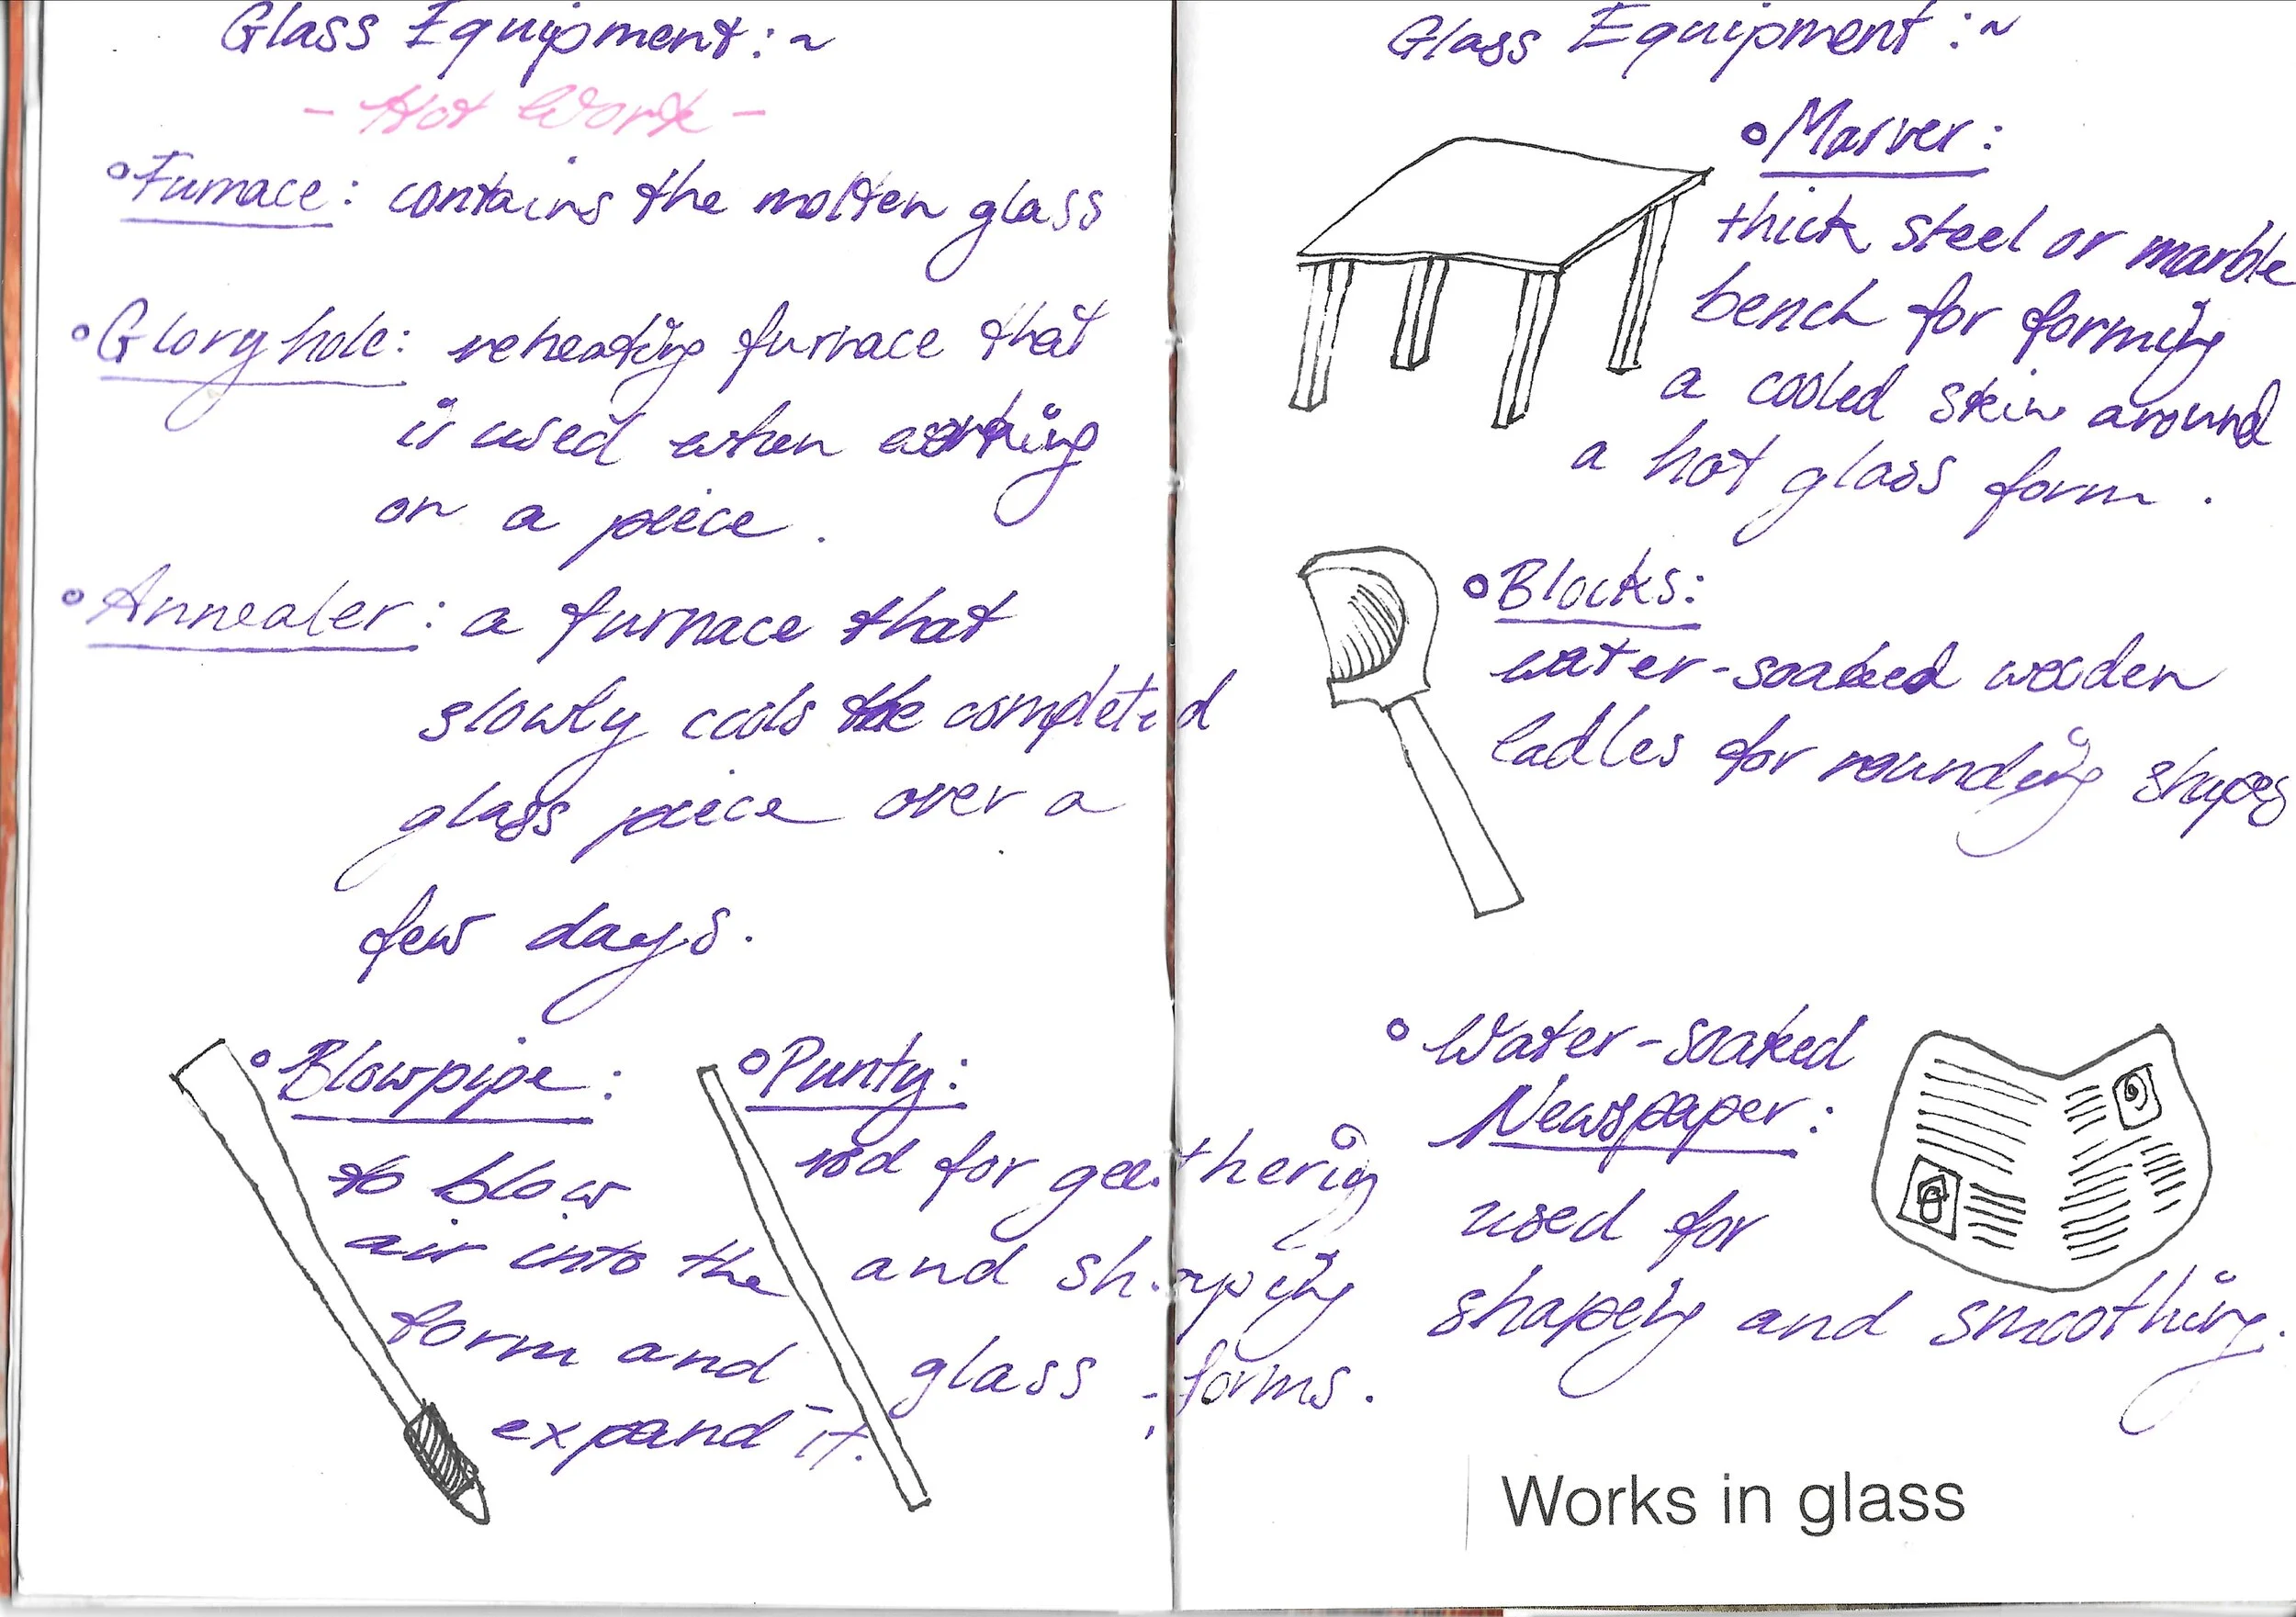 Glass Equipment:~
- Hot Work -
Furnace: contains the molten glass
Glory hole: reheating furnace that
is used when working
on a piece.
Annealer: a furnace that
slowly cools the completed
glass piece over a
few days.
Blowpipe:
to blow
air into the
form and
expand it.
Punty:
rod for gathering
and shaping
glass forms.
Glass Equipment:~
Marver:
thick steel or marble
bench for forming
a cooled skin around
a hot glass form.
Blocks:
water-soaked wooden
ladles for rounding shapes
Water-soaked
Newspaper:
used for
shaping and smoothing.
Works in glass